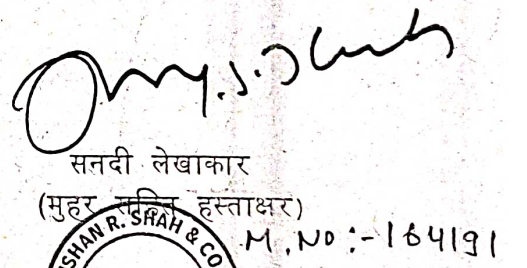 सनदी लेखाकार
(मुहर सहित हस्ताक्षर)
SHAN R. SHAH & CO
M. NO :- 164191